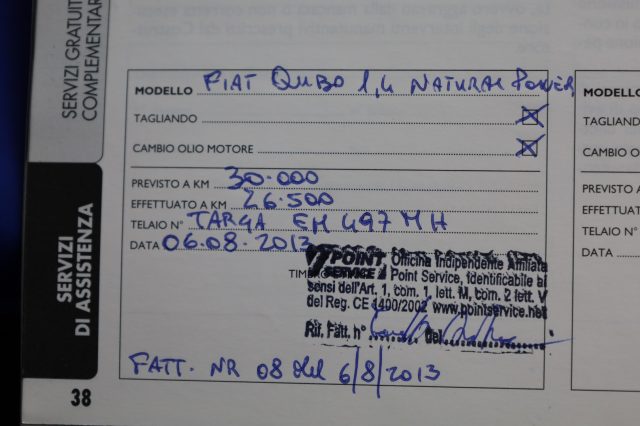 SERVIZI GRATUITI
COMPLEMENTAR
MODELLO FIAT QUBO 1,4 NATURAL POWER
TAGLIANDO
CAMBIO OLIO MOTORE
PREVISTO A KM 30.000
EFFETTUATO A KM 26.500
TELAIO N° TARGA EM 497 MH
DATA 06.08.2013
POINT SERVICE Officina Indipendente Affiliata
Point Service, identificabile ai
sensi dell'Art. 1, com. 1, lett. M, com. 2 lett. V
del Reg. CE 1400/2002 www.pointservice.net
Rif. Fatt. n° del
FATT. NR 08 del 6/8/2013
SERVIZI
DI ASSISTENZA
38
MODELLO
TAGLIANDO
CAMBIO OLIO
PREVISTO A
EFFETTUATO
TELAIO N°
DATA